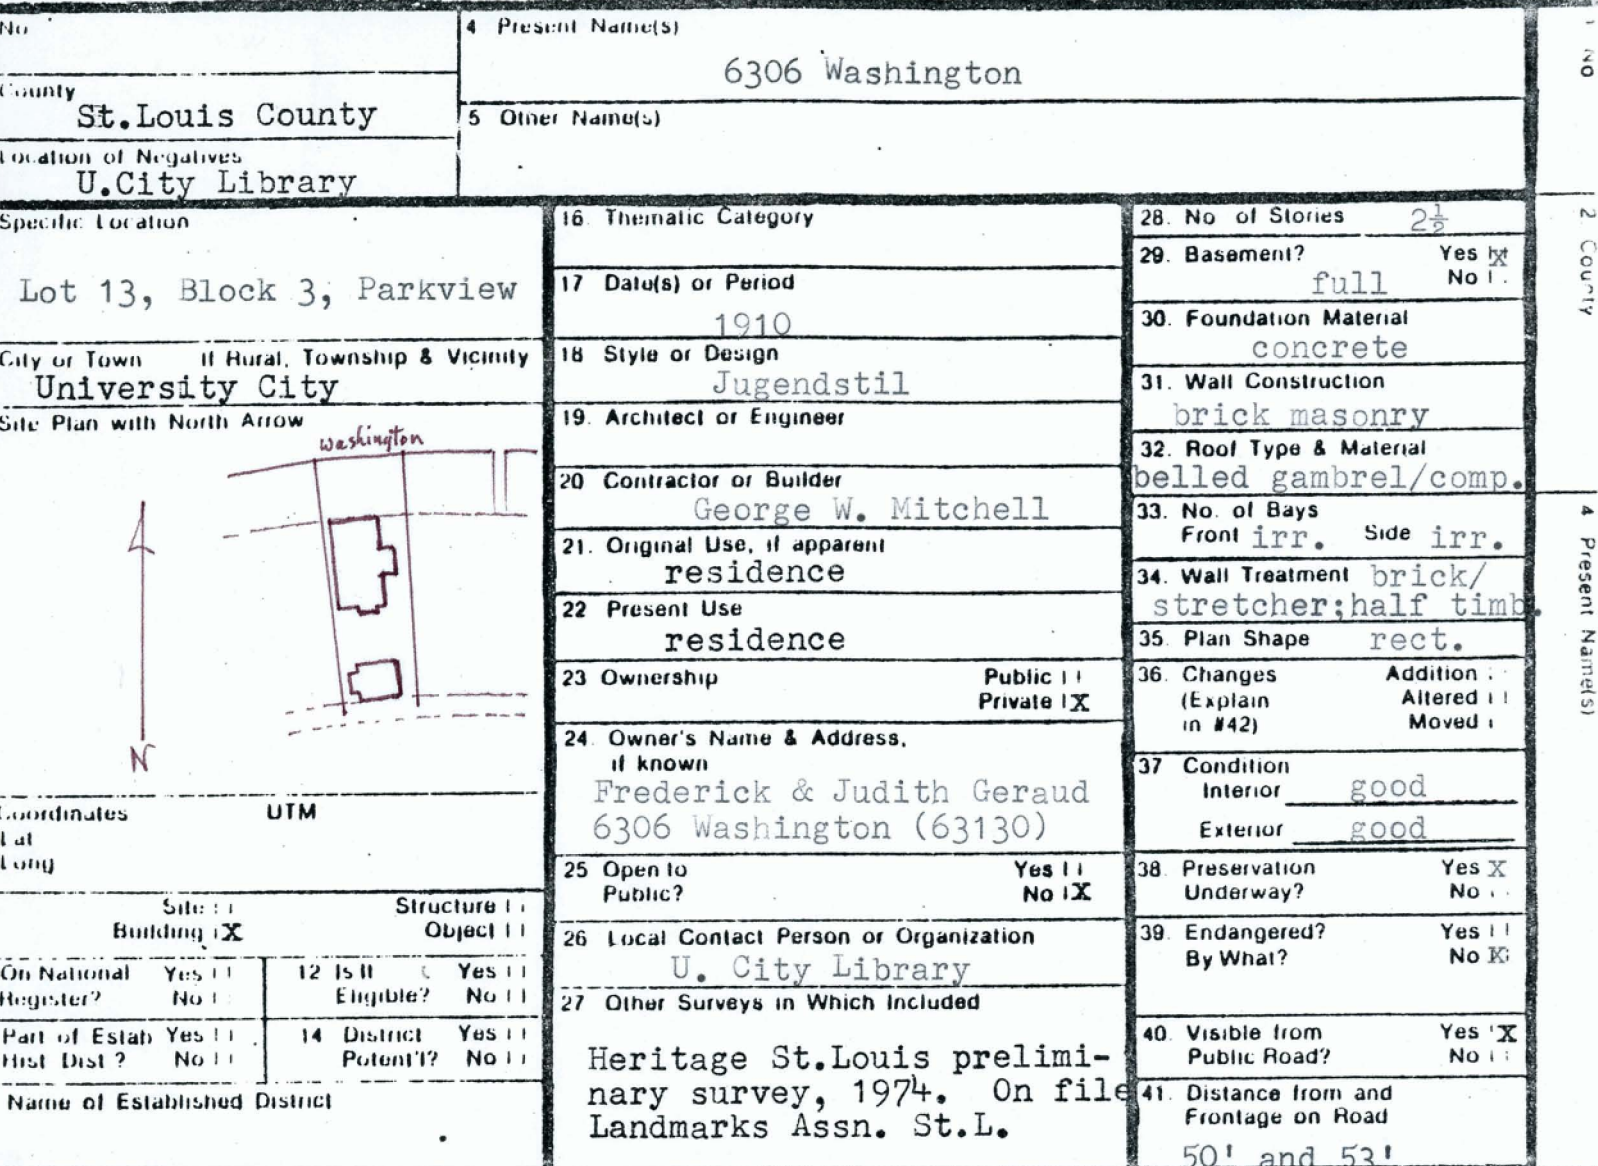 No
County
St.Louis County
Location of Negatives
U.City Library
4 Present Name(s)
6306 Washington
5 Other Name(s)
Specific Location
Lot 13, Block 3, Parkview
City or Town If Rural, Township & Vicinity
University City
Site Plan with North Arrow
Washington
N
Coordinates UTM
Lat
Long
Site
Structure
Building X
Object
On National Register? Yes No
12 Is It Eligible? Yes No
Part of Estab Hist Dist? Yes No
14 District Potent'l? Yes No
Name of Established District
16. Thematic Category
17 Date(s) or Period
1910
18 Style or Design
Jugendstil
19. Architect or Engineer
20 Contractor or Builder
George W. Mitchell
21. Original Use, if apparent
residence
22 Present Use
residence
23 Ownership Public
Private X
24. Owner's Name & Address,
if known
Frederick & Judith Geraud
6306 Washington (63130)
25 Open to Yes
Public? No X
26 Local Contact Person or Organization
U. City Library
27 Other Surveys in Which Included
Heritage St.Louis prelimi-
nary survey, 1974. On file
Landmarks Assn. St.L.
28. No of Stories 2½
29. Basement? Yes X
full No
30. Foundation Material
concrete
31. Wall Construction
brick masonry
32. Roof Type & Material
belled gambrel/comp.
33. No. of Bays
Front irr. Side irr.
34. Wall Treatment brick/
stretcher;half timb.
35. Plan Shape rect.
36. Changes Addition
(Explain Altered
in #42) Moved
37 Condition
Interior good
Exterior good
38. Preservation Yes X
Underway? No
39. Endangered? Yes
By What? No X
40. Visible from Yes X
Public Road? No
41. Distance from and
Frontage on Road
50' and 53'
1 No
2 County
4 Present Name(s)